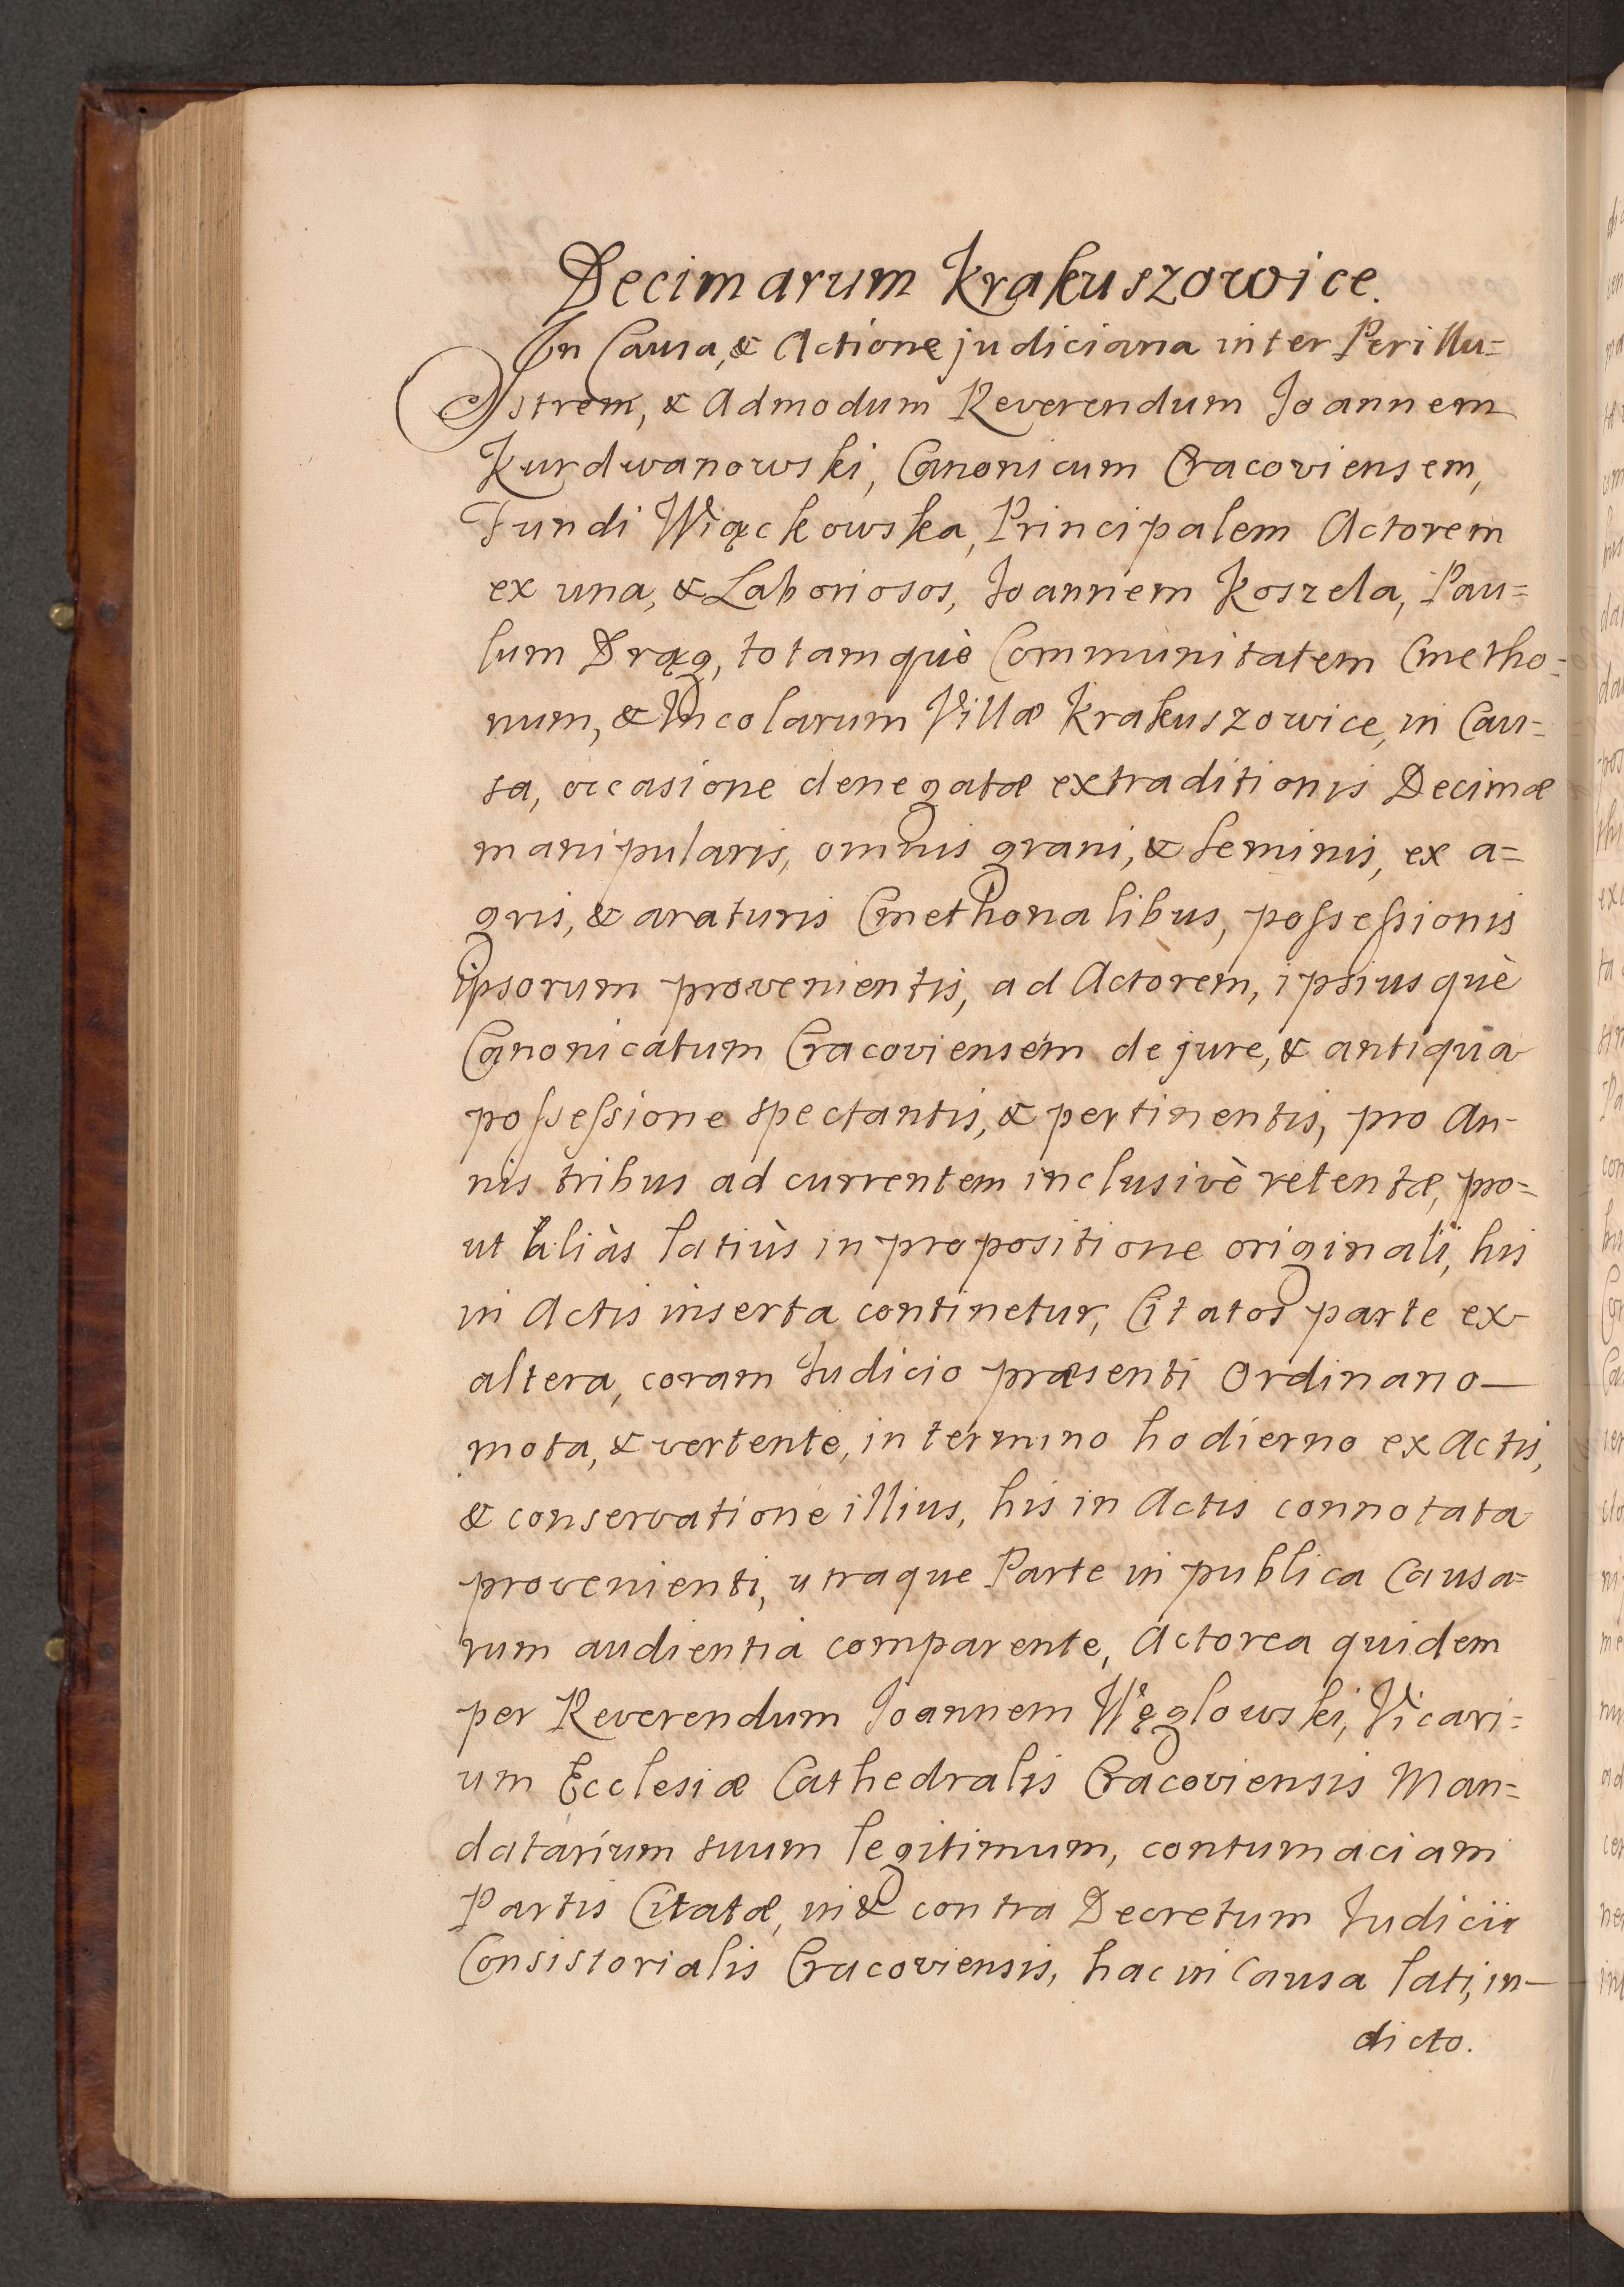 Decimarum Krakuszowice.
In Causa, & Actione judiciaria inter Perillu=
strem, & Admodum Reverendum Joannem
Kurdwanowski, Canonicum Cracoviensem,
Fundi Wiąckowska, Principalem Actorem
ex una, & Laboriosos, Joannem Koszela, Pau=
lum Drąg, totamquè Communitatem Cmetho=
num, & Incolarum Villæ Krakuszowice, in Cau=
sa, occasione denegatæ extraditionis Decimæ
manipularis, omnis grani, & seminis, ex a=
gris, & araturis Cmethonalibus, possessionis
ipsorum provenientis, ad Actorem, ipsiusquè
Canonicatum Cracoviensem de jure, & antiqua
possessione spectantis, & pertinentis, pro An-
nis tribus ad currentem inclusivè retentæ, pro=
ut aliàs latiùs in propositione originali, his
in Actis inserta continetur, Citatos parte ex
altera, coram Judicio præsenti Ordinario
mota, & vertente, in termino hodierno ex Actis,
& conservatione illius, his in Actis connotata
provenienti, utraque Parte in publica Causa=
rum audientia comparente, Actorea quidem
per Reverendum Joannem Węglowski, Vicari=
um Ecclesiæ Cathedralis Cracoviensis Man=
datarium suum legitimum, contumaciam
Partis Citatæ, in & contra Decretum Judicii
Consistorialis Cracoviensis, hac in Causa lati, in-
dicto.